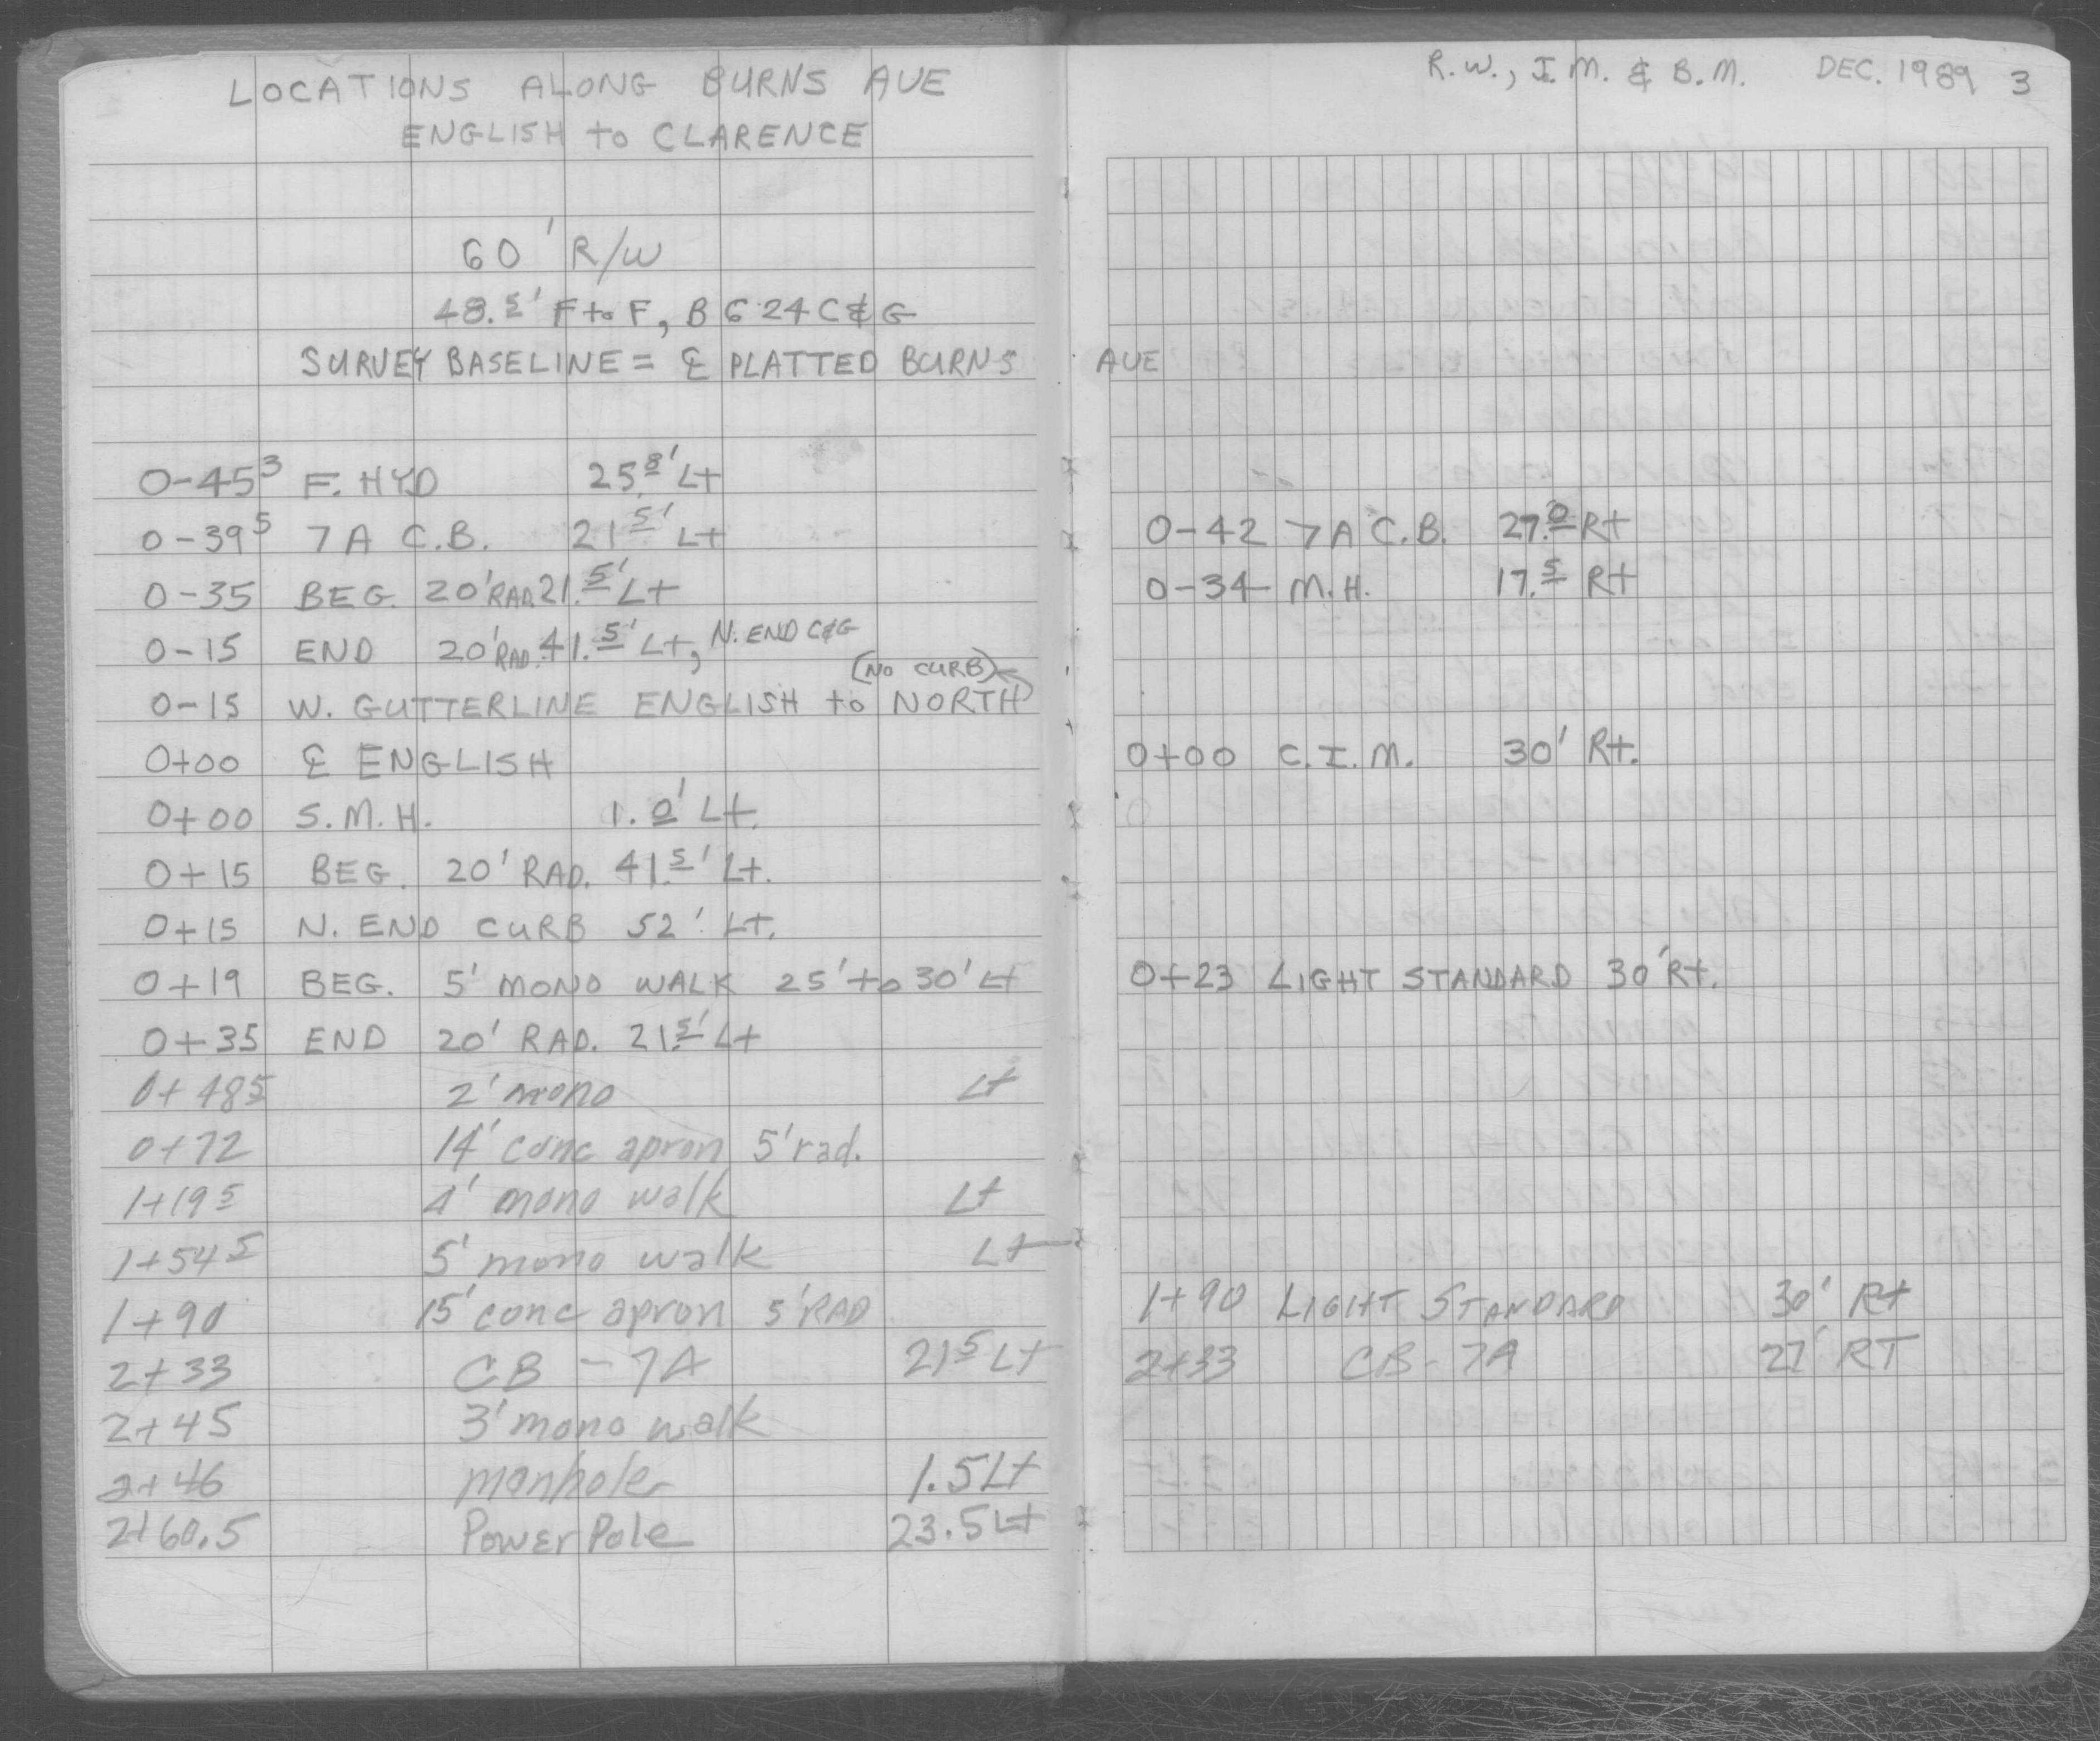 LOCATIONS ALONG BURNS AVE
ENGLISH to CLARENCE
60' R/W
48.5' F to F, B624 C&G
SURVEY BASELINE = ℄ PLATTED BURNS AVE
0-45³ F. HYD 25.8' Lt
0-39⁵ 7A C.B. 21.5' Lt
0-35 BEG. 20' RAD. 21.5' Lt
0-15 END 20' RAD. 41.5' Lt, N. END C&G
(NO CURB)
0-15 W. GUTTERLINE ENGLISH to NORTH
0+00 ℄ ENGLISH
0+00 S.M.H. 1.0' Lt.
0+15 BEG. 20' RAD. 41.5' Lt.
0+15 N. END CURB 52' Lt.
0+19 BEG. 5' MONO WALK 25' to 30' Lt
0+35 END 20' RAD. 21.5' Lt
0+48⁵ 2' mono Lt
0+72 14' conc apron 5' rad.
1+19⁵ 4' mono walk Lt
1+54⁵ 5' mono walk Lt
1+90 15' conc apron 5' RAD
2+33 CB - 7A 21⁵ Lt
2+45 3' mono walk
2+46 manhole 1.5 Lt
2+60.5 Power Pole 23.5 Lt
R.W., I.M. & B.M. DEC. 1989 3
0-42 7A C.B. 27.0 Rt
0-34 M.H. 17.5 Rt
0+00 C.I.M. 30' Rt.
0+23 LIGHT STANDARD 30' Rt.
1+90 LIGHT STANDARD 30' Rt
2+33 CB - 7A 27' RT